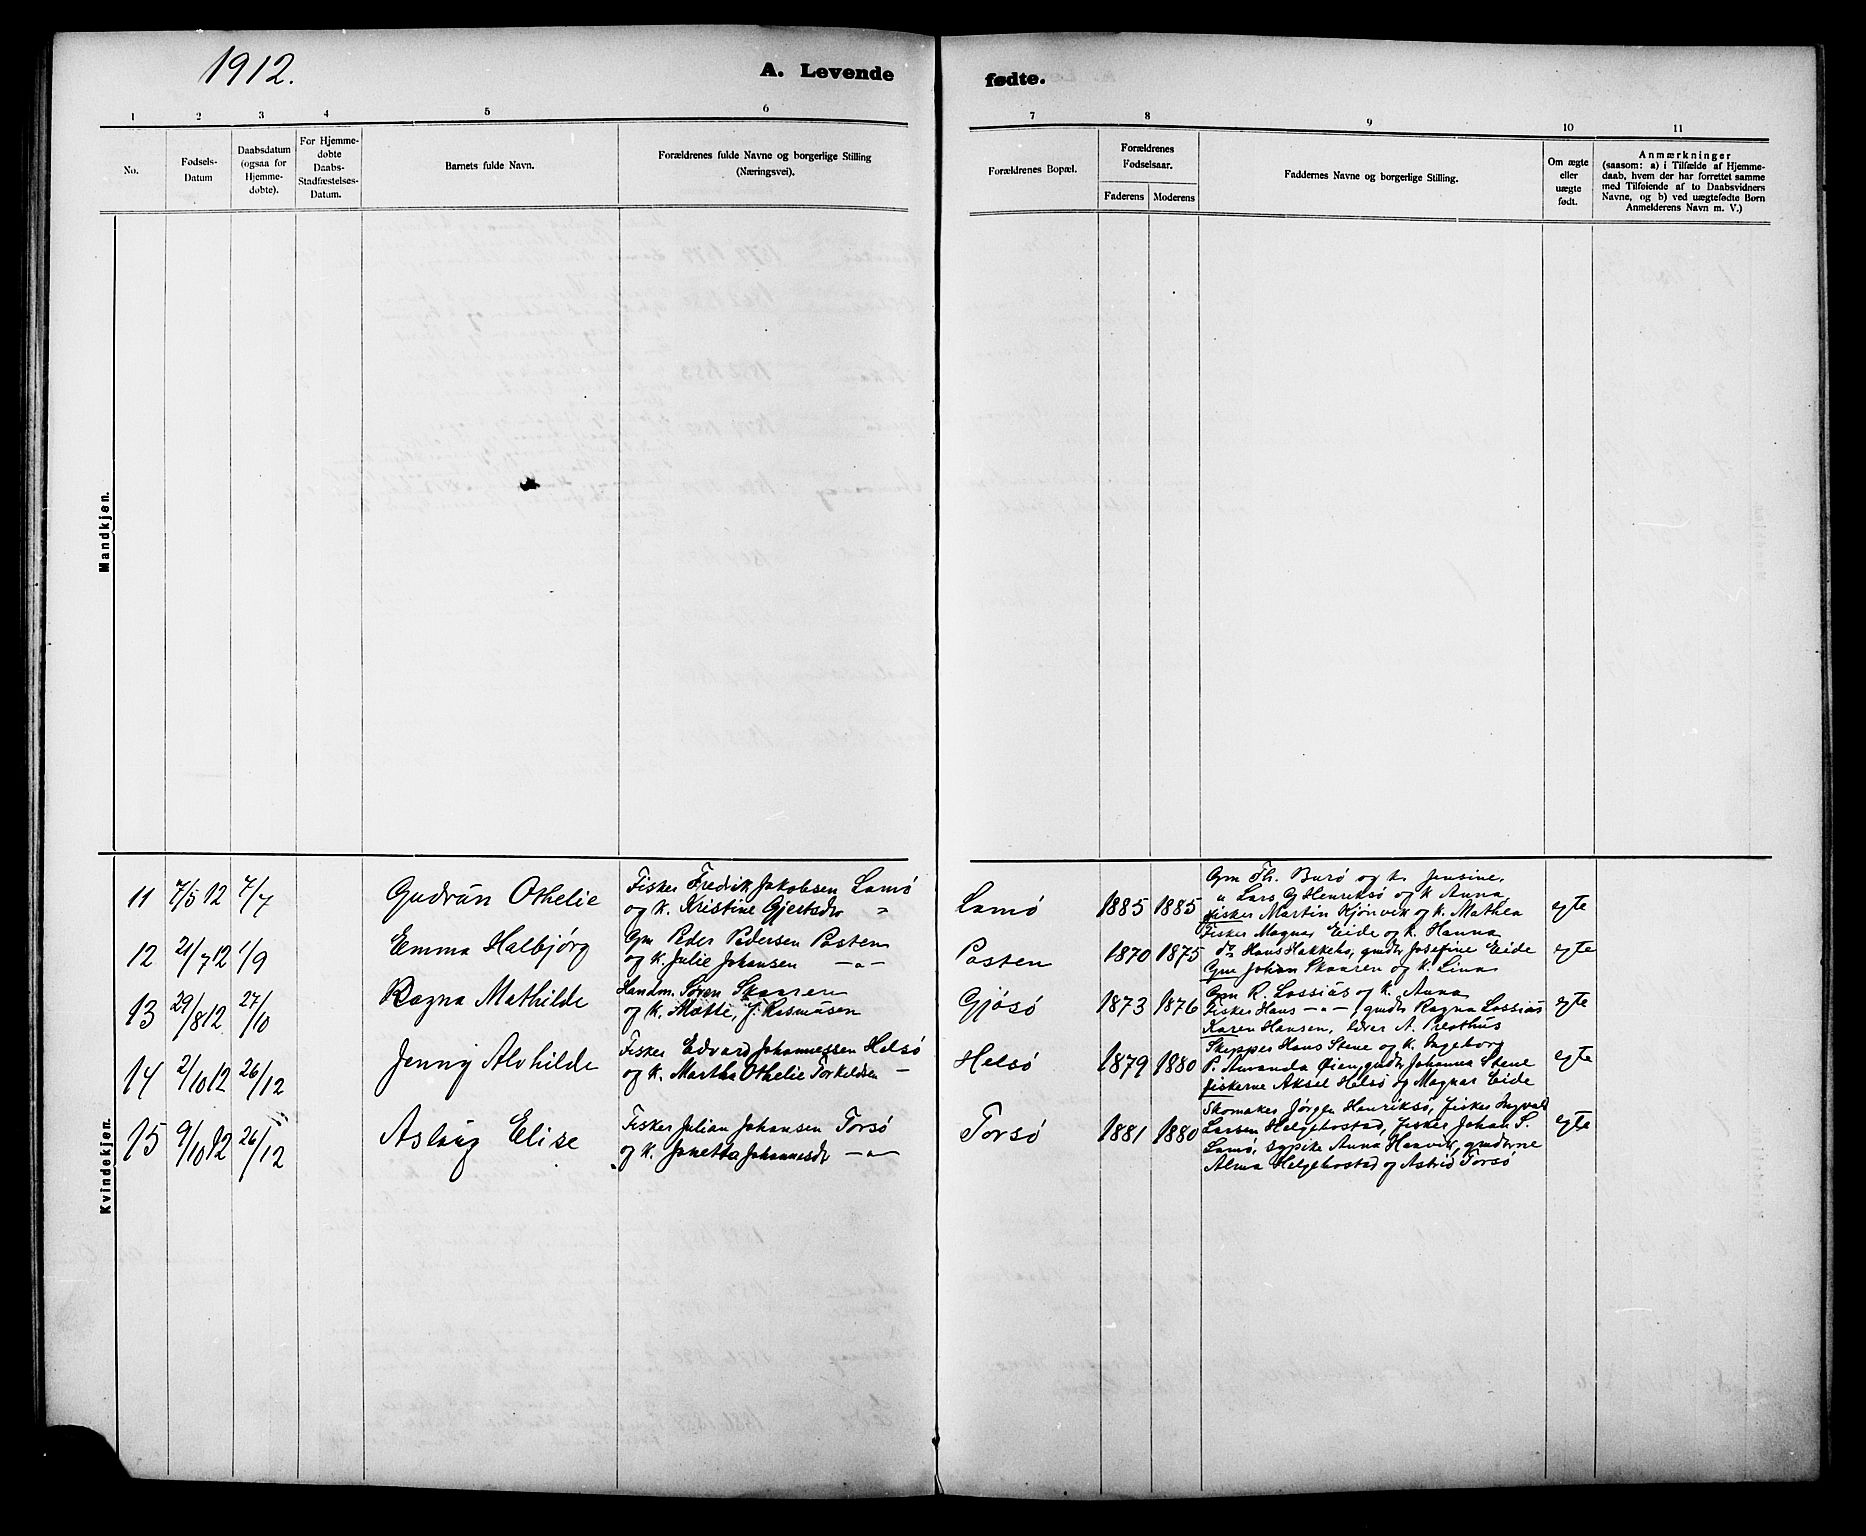 1912.
A. Levende fødte.
1 2 3 4 5 6 7 8 9 10 11
No.
Fødsels-
Datum
Daabsdatum
(ogsaa for
Hjemme-
døbte).
For Hjemme-
døbte
Daabs-
Stadfæstelses-
Datum.
Barnets fulde Navn.
Forældrenes fulde Navne og borgerlige Stilling
(Næringsvei).
Forældrenes Bopæl.
Forældrenes
Fødselsaar.
Faderens Moderens
Faddernes Navne og borgerlige Stilling.
Om ægte
eller
uægte
født.
Anmærkninger
(saasom: a) i Tilfælde af Hjemme-
daab, hvem der har forrettet samme
med Tilføiende af to Daabsvidners
Navne, og b) ved uægtefødte Børn
Anmelderens Navn m. V.)
Mandkjøn.
Kvindekjøn.
11 7/5 12 7/7
Gudrun Othelie
Fisker Fredrik Jakobsen Lamø
og K. Kristine Gjertsdr "
Lamø
1885 1885
Gm Th. Burø og k. Jensine,
" Lars G Henriksø og K Anna,
fisker Martin Kjønvik og K. Mathea
egte
12 21/7 12 1/9
Emma Halbjørg
Gm Peder Pedersen Posten
og K. Julie Johansen —"—
Posten
1870 1875
Fisker Magnus Eide og K. Hanna
do Hans Hakkebo, gmdr Josefine Eide
Gm Johan Skaaren og K. Lina
egte
13 29/8 12 27/10
Ragna Mathilde
Handm. Søren Skaaren
og K. Mette, f. Rasmussen
Gjøsø
1873 1876
Gm R. Lossius og K. Anna
Fisker Hans —"—, gmdr Ragna Lossius
Karen Hansen, lærer A. Presthus
egte
14 2/10 12 26/12
Jenny Alvhilde
Fisker Edvard Johannessen Helsø
og K. Martha Othelie Torkeldsen —
Helsø
1879 1880
Skipper Hans Stene og K. Ingeborg
P. Amanda Øien, gmdr Johanna Stene
fiskerne Aksel Helsø og Magnar Eide
egte
15 9/10 12 26/12
Aslaug Elise
Fisker Julian Johansen Torsø
og K. Janetta Johannesdr —"—
Torsø
1881 1880
Skomaker Jørgen Henriksø, fisker Ingvald
Larsen Helgebostad, fisker Johan S.
Lamø, sypike Anna Haavik, gmdrerne
Alma Helgebostad og Astrid Torsø
egte